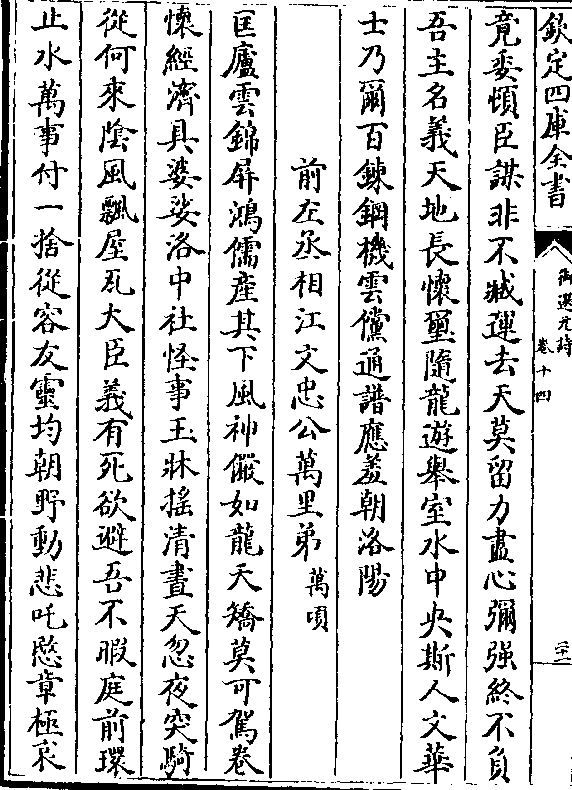 欽定四庫全書
御選元詩
卷十四
二十一
竟委頓臣謀非不臧運去天莫留力盡心彌强終不負
吾主名義天地長懷璽隨龍遊舉室水中央斯人文華
士乃爾百鍊鋼機雲儻通譜應羞朝洛陽
前左丞相江文忠公萬里弟萬頃
匡廬雲錦屏鴻儒產其下風神儼如龍天矯莫可駕卷
懷經濟具婆娑洛中社怪事玉牀搖清晝天忽夜突騎
從何來陰風飄屋瓦大臣義有死欲避吾不暇庭前環
止水萬事付一捨從容友靈均朝野動悲吒愍章極哀